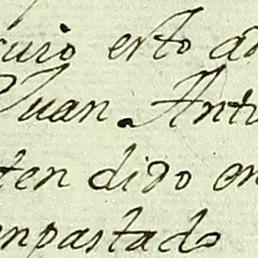 curo esto do
Juan Anto
ten dido en
enpastado